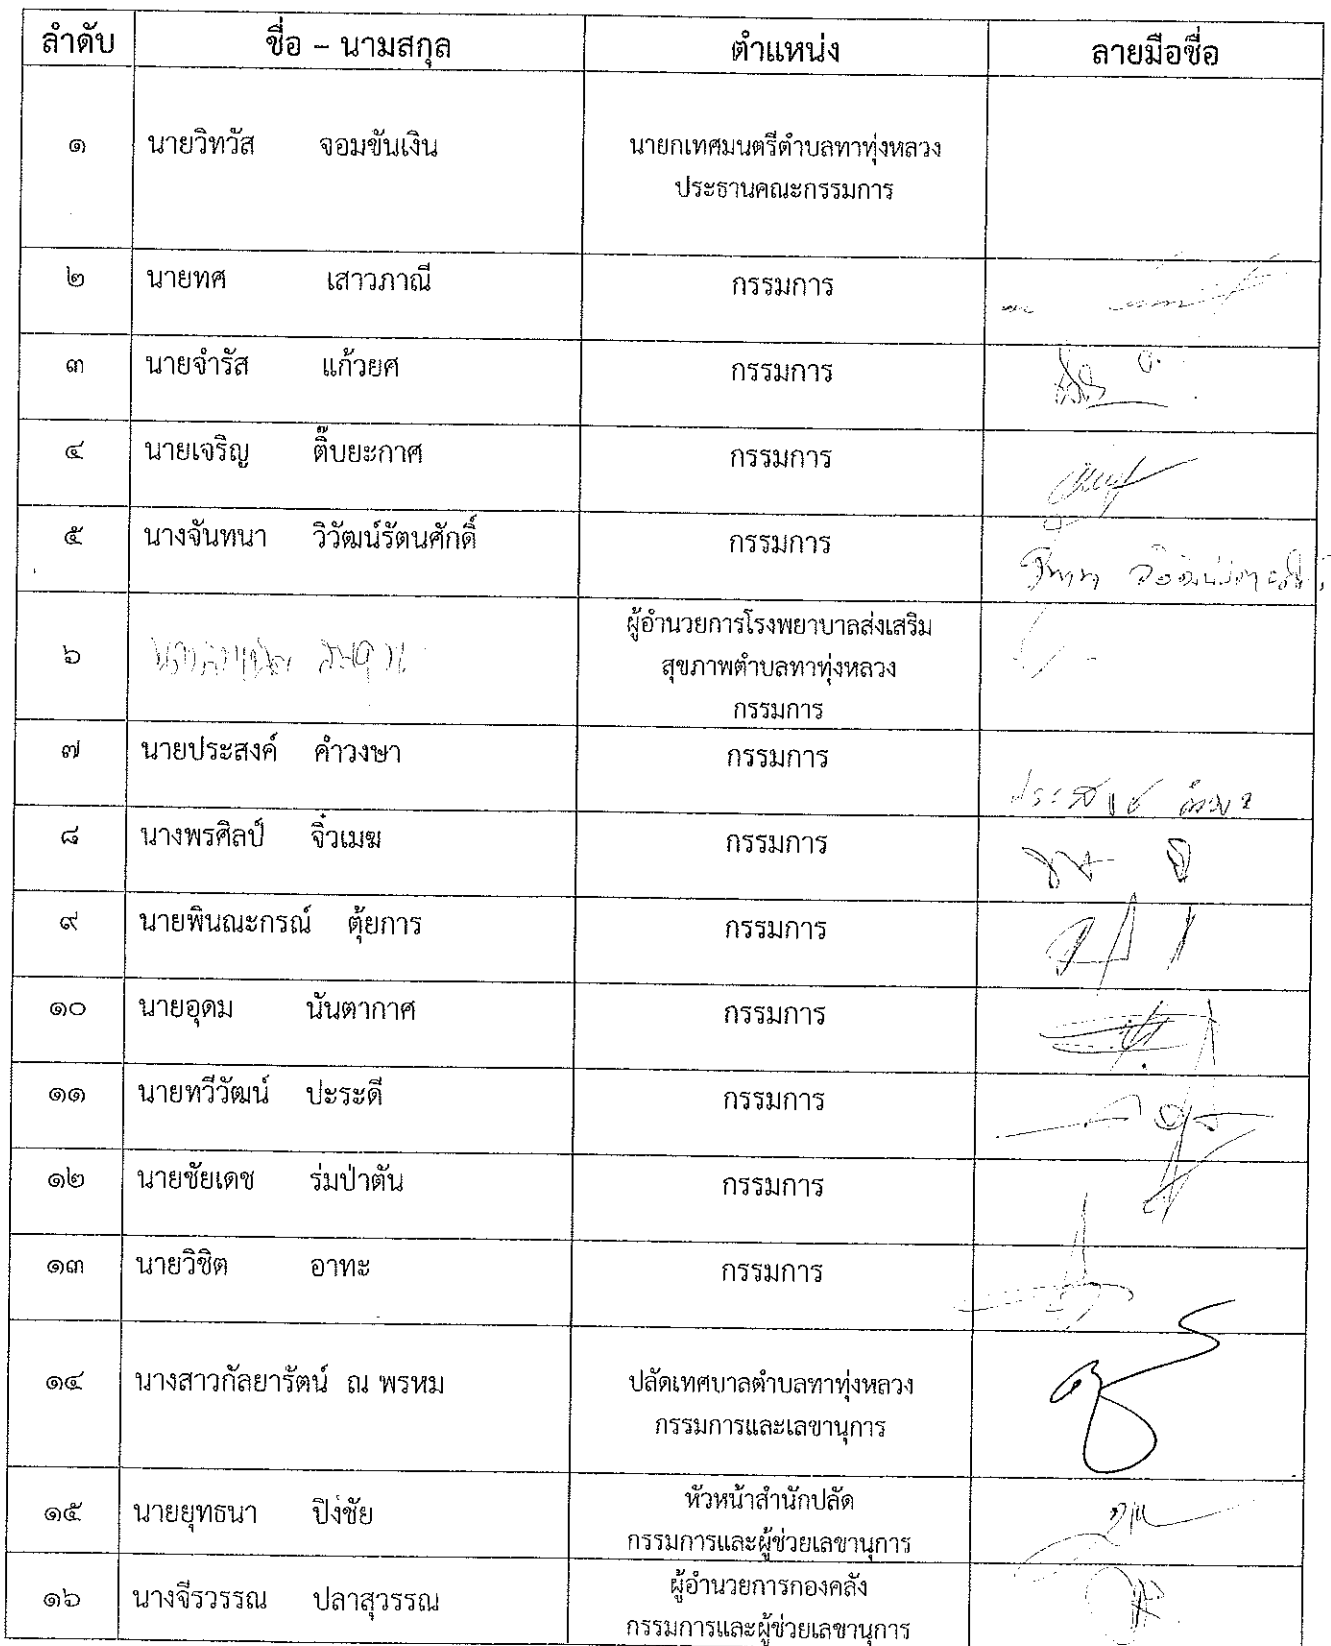 ลำดับ ชื่อ – นามสกุล ตำแหน่ง ลายมือชื่อ
๑ นายวิทวัส จอมขันเงิน นายกเทศมนตรีตำบลทาทุ่งหลวง
ประธานคณะกรรมการ
๒ นายทศ เสาวภาณี กรรมการ
๓ นายจำรัส แก้วยศ กรรมการ
๔ นายเจริญ ติ๊บยะกาศ กรรมการ
๕ นางจันทนา วิวัฒน์รัตนศักดิ์ กรรมการ
๖ ผู้อำนวยการโรงพยาบาลส่งเสริม
สุขภาพตำบลทาทุ่งหลวง
กรรมการ
๗ นายประสงค์ คำวงษา กรรมการ
๘ นางพรศิลป์ จิ๋วเมฆ กรรมการ
๙ นายพินณะกรณ์ ตุ้ยการ กรรมการ
๑๐ นายอุดม นันตากาศ กรรมการ
๑๑ นายทวีวัฒน์ ปะระดี กรรมการ
๑๒ นายชัยเดช ร่มป่าตัน กรรมการ
๑๓ นายวิชิต อาทะ กรรมการ
๑๔ นางสาวกัลยารัตน์ ณ พรหม ปลัดเทศบาลตำบลทาทุ่งหลวง
กรรมการและเลขานุการ
๑๕ นายยุทธนา ปิงชัย หัวหน้าสำนักปลัด
กรรมการและผู้ช่วยเลขานุการ
๑๖ นางจีรวรรณ ปลาสุวรรณ ผู้อำนวยการกองคลัง
กรรมการและผู้ช่วยเลขานุการ